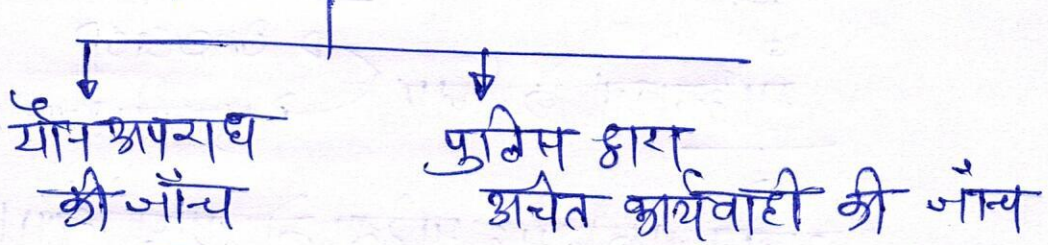 यौन अपराध
की जाँच
पुलिस द्वारा
अचेत कार्यवाही की जाँच